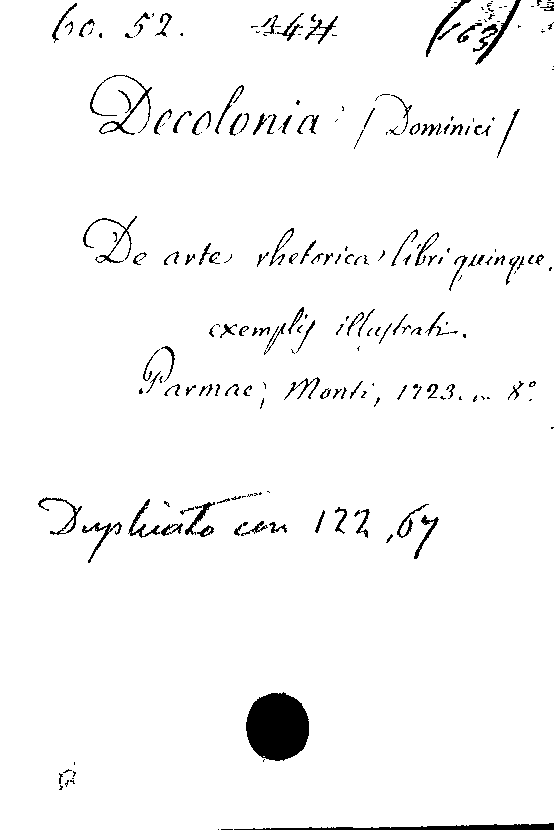 60. 52. 347 (163)
Decolonia /Dominici/
De arte rhetorica libri quinque.
exemplis illustrati.
Parmae, Monti, 1723. in 8°.
Duplicato con 122,67